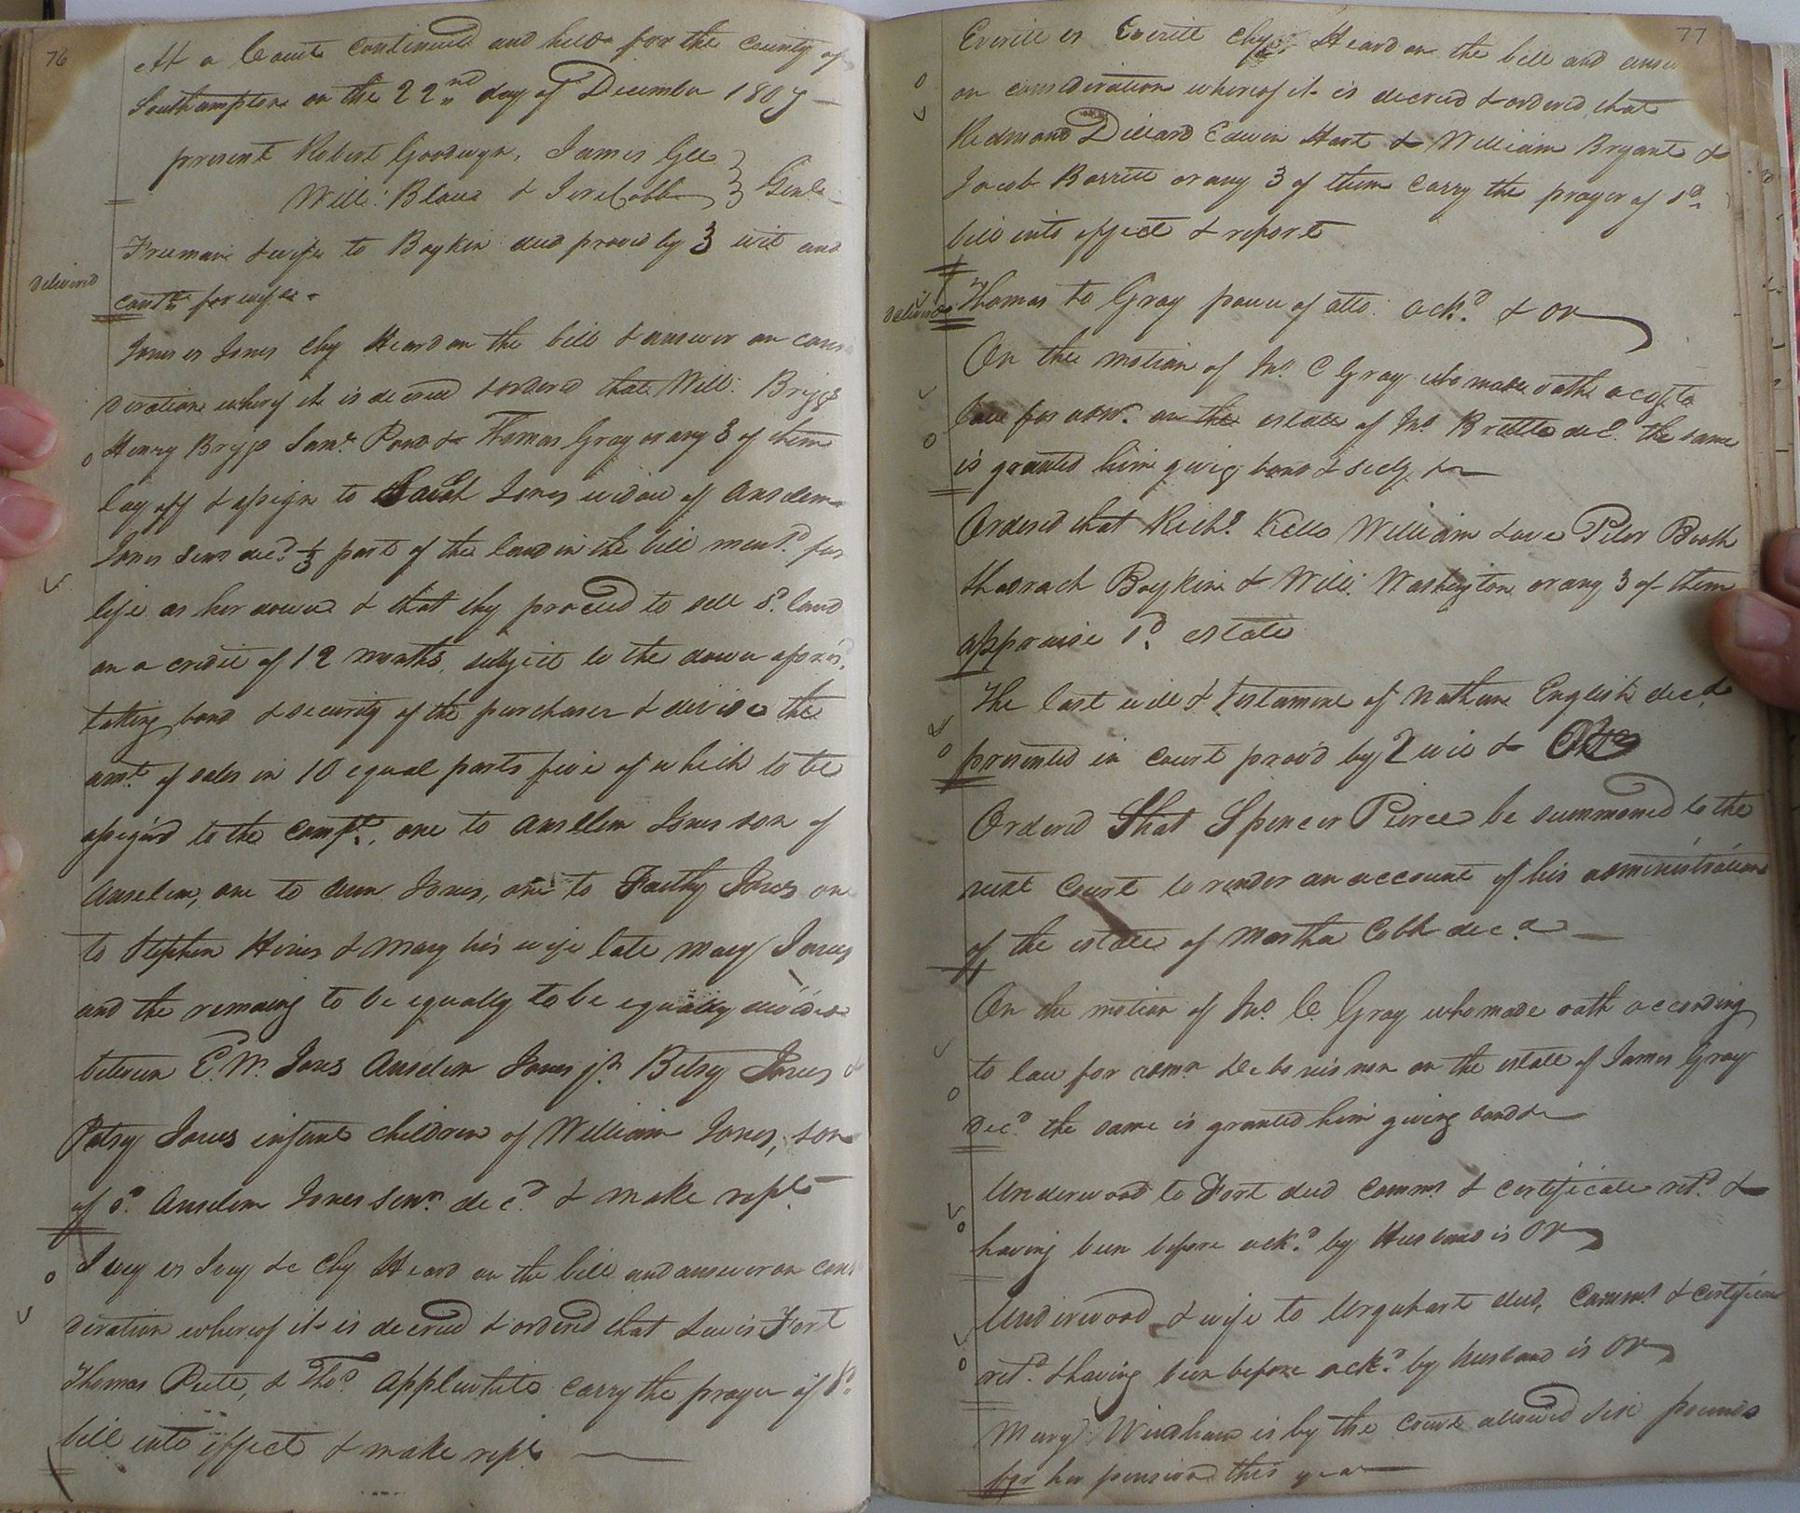 76
At a Court continued and held for the County of
Southampton on the 22nd day of December 1807
present Robert Goodwyn, James Gee
Will: Blow & Jere Cobb Gent
Freeman & wife to Boykin deed proved by 3 wit and
delivered
contd for wife
Jones vs Jones Chy Heard on the bill & answer on consi
deration whereof it is decreed & ordered that Will: Briggs
Henry Briggs Saml Pond & Thomas Gray or any 3 of them
lay off & assign to Sarah Jones widow of Anselem
Jones Senr decd 1/3 part of the land in the bill mentd for
life as her dower & that they proceed to sell sd land
on a credit of 12 months, subject to the dower afores'd
taking bond & security of the purchaser & devise the
amt of sales in 10 equal parts five of which to be
assign'd to the Compt, one to Anselem Jones son of
Anselem, one to Ann Jones, one to Faithy Jones one
to Stephen Hines & Mary his wife late Mary Jones
and the remaing to be equally to be equally divided
between E. W. Jones Anselem Jones jr Betsey Jones &
Patsy Jones infant children of William Jones, son
of sd Anselem Jones Senr decd & make rept
Ivey vs Ivey &c Chy Heard on the bill and answer on consi
deration whereof it is decreed & ordered that Lewis Fort
Thomas Pete, & Thos Applewhite carry the prayer of sd
bill into effect & make rept
77
Everitt vs Everitt Chy Heard on the bill and answ
on consideration whereof it is decreed & ordered that
Redmond Dillard Edwin Hart & William Bryant &
Jacob Barrett or any 3 of them carry the prayer of sd
bill into effect & report
delivered
Thomas to Gray power of atto: ackd & OR
On the motion of Jno. C Gray who made oath accg to
law for admr. on the estate of Jno. Brittle decd. the same
is granted him giving bond & secty &c
Ordered that Richd. Kello William Love Peter Booth
Shadrach Boykin & Will: Washington or any 3 of them
appraise sd. estate
The last will & testament of Nathan English decd
presented in court proved by 2 wit &
Ordered that Spencer Pierce be summoned to the
next Court to render an account of his administration
of the estate of Martha Cobb decd
On the motion of Jno. C. Gray who made oath according
to law for admn de bonis non on the estate of James Gray
decd. the same is granted him giving bond &c
Underwood to Fort deed Comms & certificate retd. &
having been before ackd. by Husband is OR
Underwood & wife to Urquhart deed, Comms & certificate
retd. & having been before ackd. by husband is OR
Mary Windham is by the Court allowed six pounds
for her pension this year